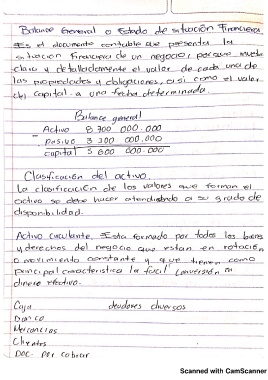 Balance General o Estado de situación Financiera.
Es el documento contable que presenta la
situacion Financiera de un negocio, porque muestra
clara y detalladamente el valor de cada una de
las propiedades y obligaciones, asi como el valor
del capital a una fecha determinada.
Balance general
Activo 8 900 000.000
- pasivo 3 300 000.000
capital 5 600 000.000
Clasificación del activo.
la clasificación de los valores que forman el
activo se debe hacer atendiendo a su grado de
disponibilidad.
Activo circulante. Esta formado por todos los bienes
y derechos del negocio que estan en rotación
o movimiento constante y que tienen como
principal caracteristica la facil conversión en
dinero efectivo.
Caja deudores diversos
Banco
Mercancias
Clientes
Doc. por cobrar
Scanned with CamScanner